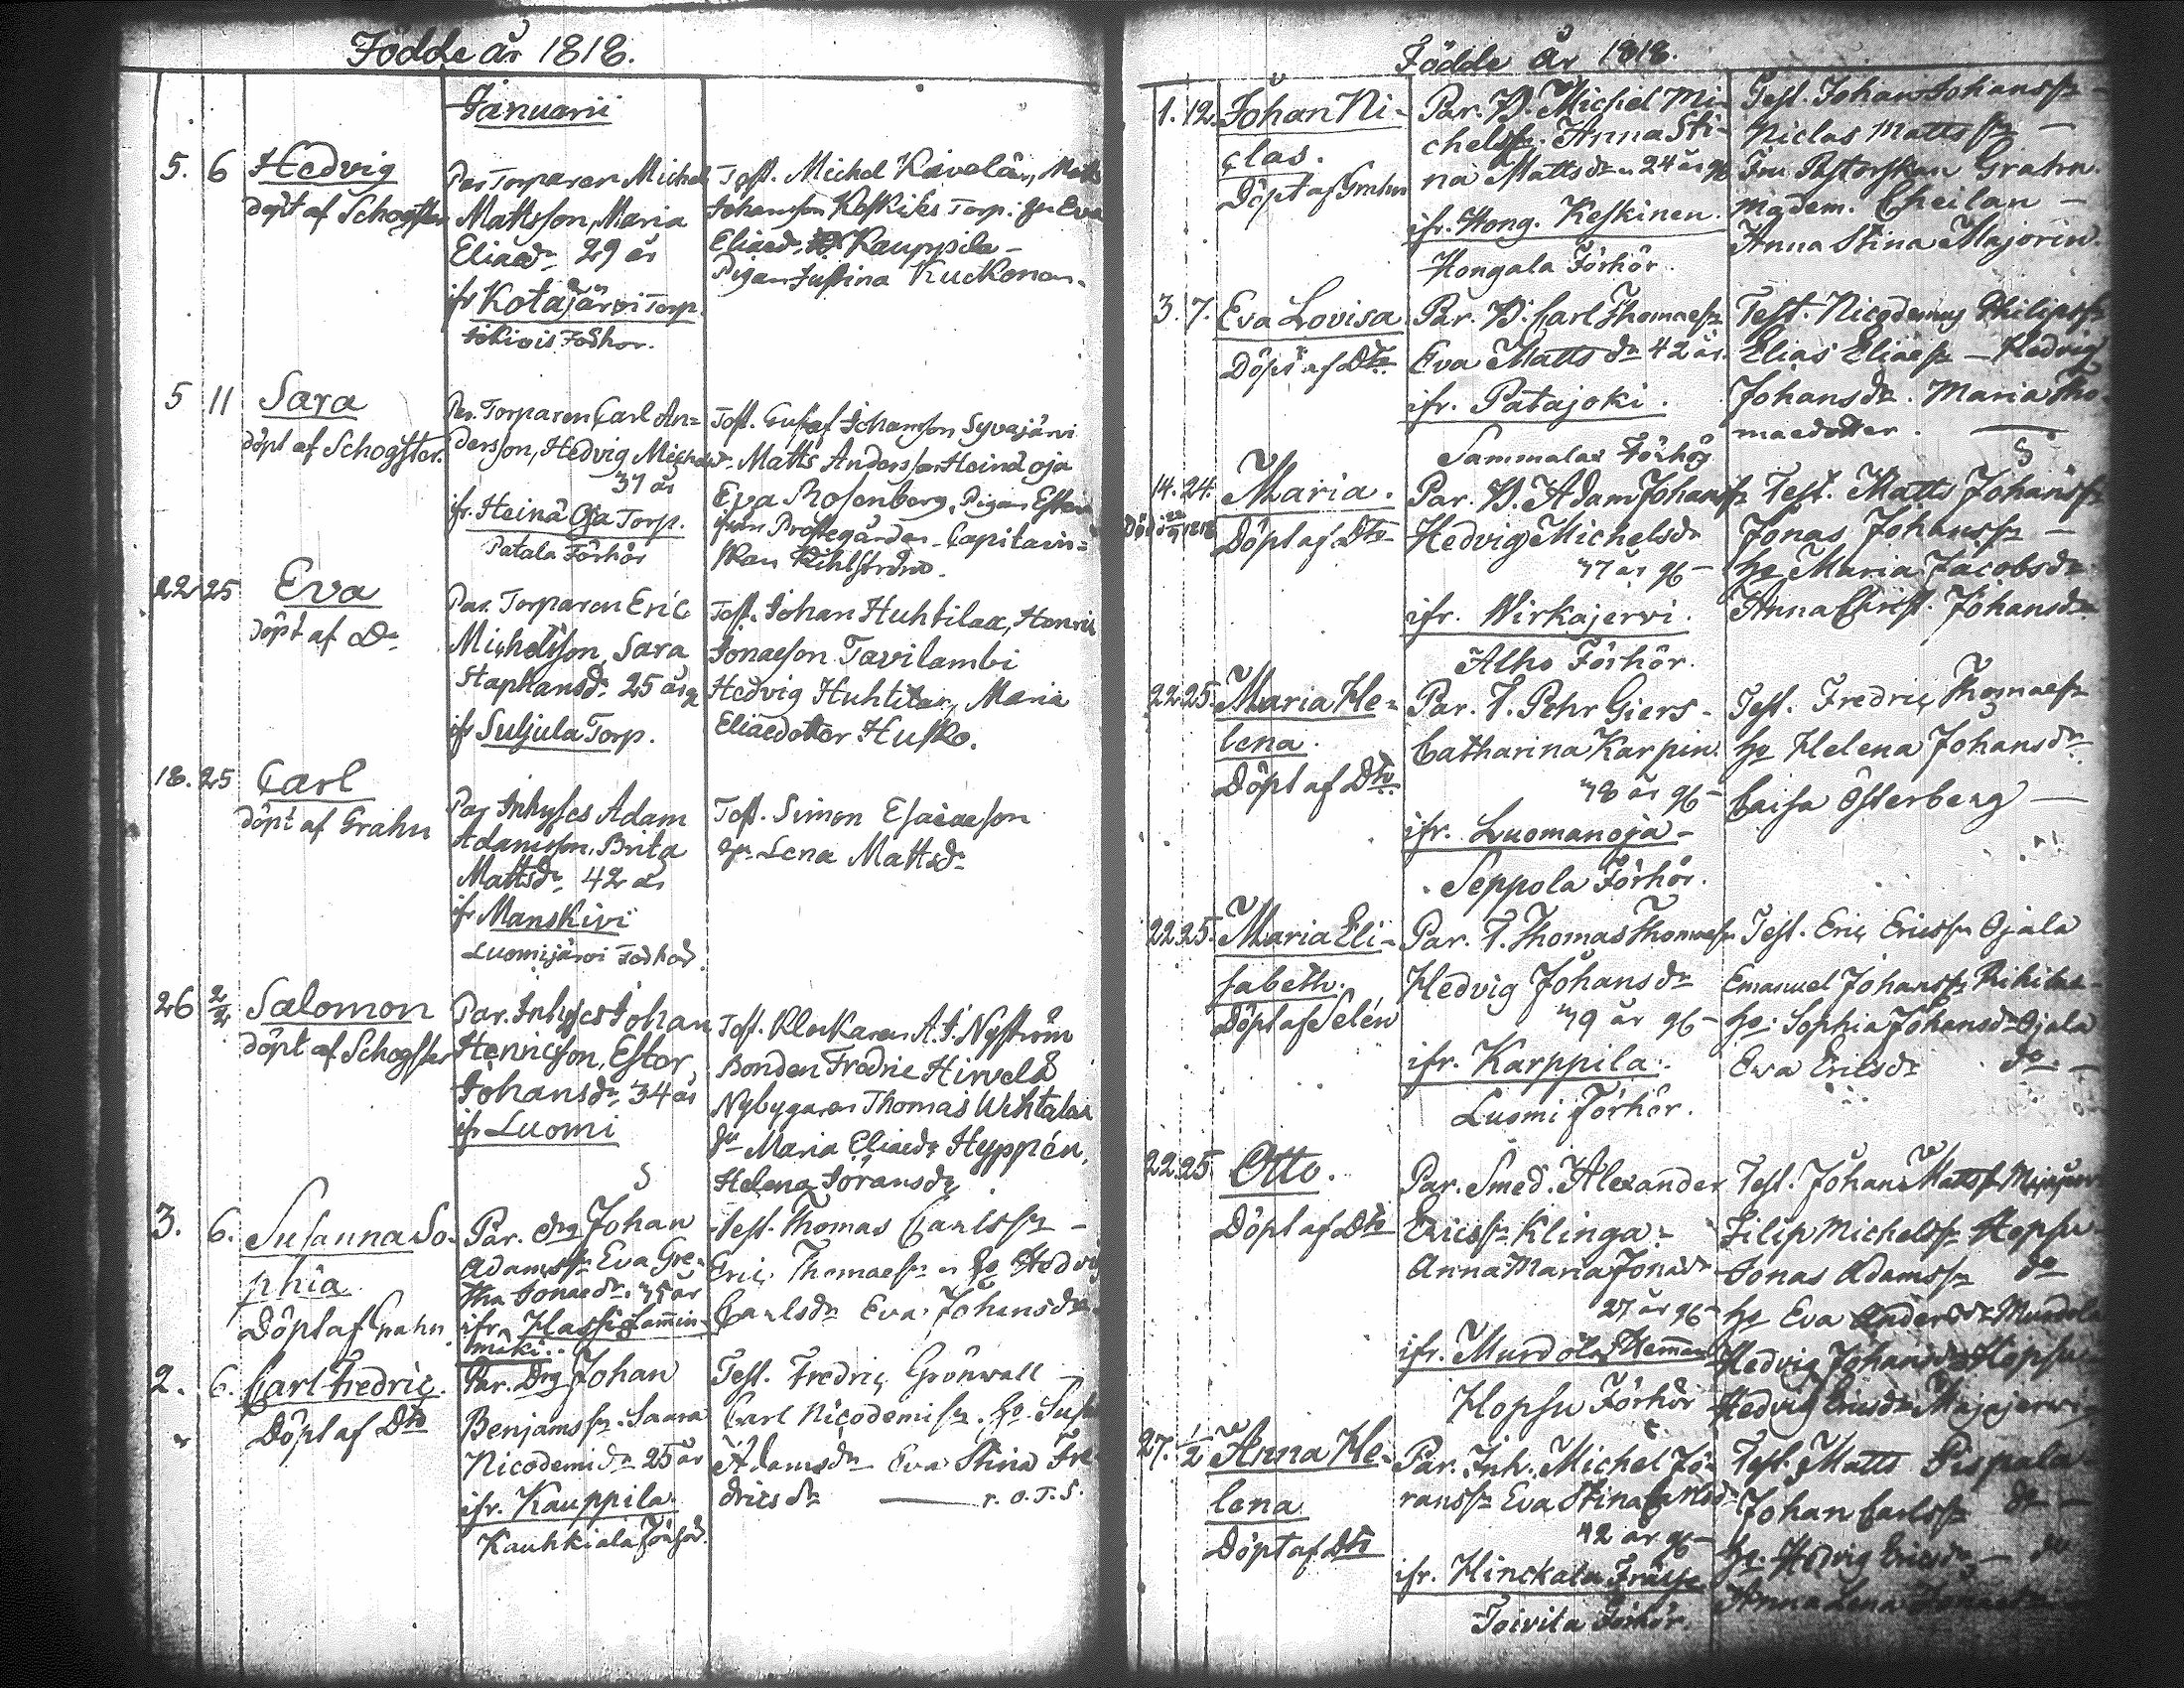 Födde år 1818.
Januarii
5. 6 Hedvig
döpt af Schogster
Par Torparen Michel
Mattsson, Maria
Eliaed. 29 år
ifr Kotajärvi Torp.
Test. Michel Kavelar, Matts
Johansson Keskikis Torp. hu Eva
Eliaed. Kauppila –
Pigan Justina Kuckonen.
5 11 Sara
döpt af Schogster.
Par. Torparen Carl An=
dersson, Hedvig Michelsd.
37 år
ifr. Heinä Oja Torp.
Patala Förhör
Test. Gustaf Johansson Syvajärvi
Matts Andersson Heinä oja
Eva Rosenberg, Pigan Ester
från Prostegården – Capitain=
skan
22 25 Eva
döpt af Do
Par. Torparen Eric
Michelsson, Sara
Staphansd. 25 år
ifr Suljula Torp.
Test. Johan Huhtilaa, Henric
Jonaeson Tavilambi
Hedvig Huhtilaa, Maria
Eliaedotter Husko.
18. 25 Carl
döpt af Grahn
Par Inhyses Adam
Adamsson, Brita
Mattsdr. 42 år
ifr Manskivi
Luomijärvi Förhör.
Test. Simon Esaiaeson
hu. Lena Mattsdr
26 2/2 Salomon
döpt af Schogster
Par. Inhyses Johan
Henricson, Ester
Johansdr. 34 år
ifr Luomi
Test. Klockaren A. J. Nyström
Bonden Fredric Hirvelä
Nybygaren Thomas Wehtalaa
Maria Eliaedr Hyppén,
Helena Göransdr
3. 6. Susanna So-
phia
Döpt af Grahn
Par. Drg Johan
Adamssn Eva Gre-
tha Jonaedr. 35 år
ifr. Hassi Lammin-
mäki.
Test. Thomas Carlssn –
Eric Thomaessn hu Hedvig
Carlsdr Eva Johansdr
2. 6. Carl Fredric.
Döpt af Dto
Par. Drg Johan
Benjamssn. Saara
Nicodemidr 25 år
ifr. Kauppila
Kauhkiala Förhör.
Test. Fredric Grönwall
Carl Nicodemissn. hu Susa
Adamsdr Eva Stina Fre-
dricsdr r. o. T. S.
Födde år 1818.
1. 12. Johan Ni-
clas.
Döpt af Grahn
Par. B. Michel Mi-
chelssn. Anna Sti-
na Mattsdr 24 år g
ifr. Hong. Keskinen.
Hongala Förhör.
Test. Johan Johanssn –
Niclas Mattssn –
Fru Pastorskan Grahn.
Madem. Cheilan –
Anna Stina Majorin.
3. 7. Eva Lovisa
Döpt af Dto
Par. B. Carl Thomaessn
Eva Mattsdr 42 år.
ifr. Patajoki.
Sammalax Förhör
Test. Nicodemus Philipssn
Elias Eliaessn – Hedvig
Johansdr. Maria Tho-
maedotter.
14. 24. Maria.
Döpt af Dto
Par. B. Adam Johanssn
Hedvig Michelsdr
37 år g –
ifr. Wirkajervi.
Alho Förhör.
Test. Matts Johanssn
Jonas Johanssn –
hu Maria Jacobsdr
Anna Christ. Johansdr
22. 25. Maria He-
lena.
Döpt af Dto
Par. T. Pehr Giers –
Catharina Karpin.
38 år g –
ifr. Luomanoja –
Seppola Förhör.
Test. Fredric Thomaessn
hu Helena Johansdr
Caisa Österberg –
22. 25. Maria Eli-
sabeth.
Döpt af Selén
Par. T. Thomas Thomaessn
Hedvig Johansdr
39 år g –
ifr. Karppila.
Luomi Förhör.
Test. Eric Ericssn Ojala
Emanuel Johanssn
hu. Sophia Johansdr Ojala
Eva Ericsdr do –
22. 25 Otto.
Döpt af Dto
Par. Smed. Alexander
Ericssn Klinga.
Anna Maria Jonaedr
27 år g –
ifr. Murdola Hemman
Hopsu Förhör
Test. Johan Mattssn
Filip Michelssn Hopsu
Jonas Adamssn do
hu Eva Andersdr Murdola
Hedvig Johansdr Hopsu
Hedvig Ericsdr Majajervi
27. 1/2 Anna He-
lena
Döpt af Dto
Par. Inh. Michel Jö-
ranssn Eva Stina Carlsdr
42 år g –
ifr. Hinckala
Toivila Förhör.
Test. Matts Pispala
Johan Carlssn do –
hu. Hedvig Ericsdr – do
Anna Lena